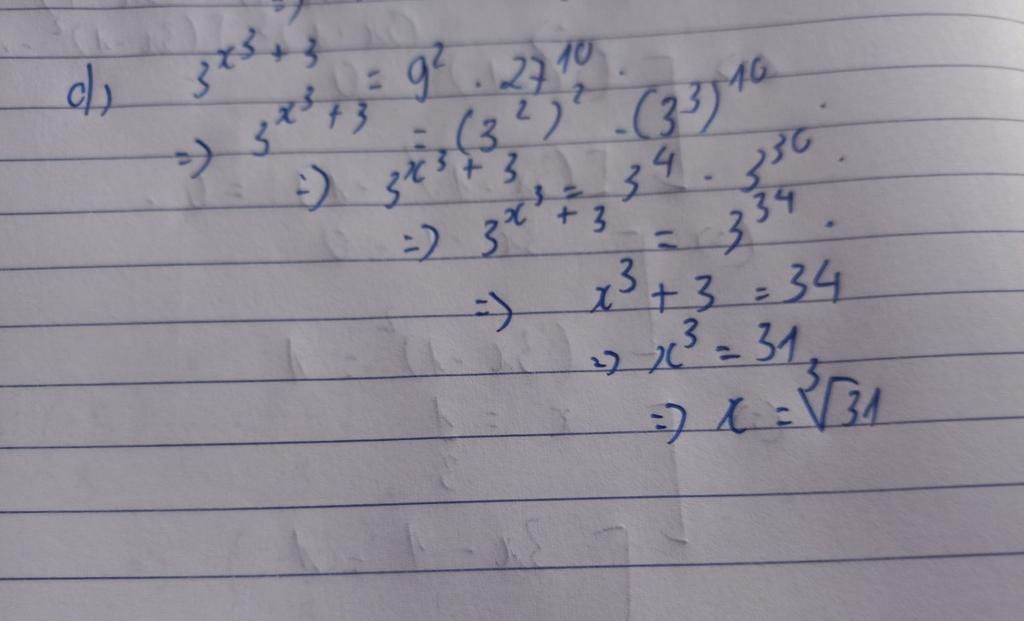 d) 3^{x^3 + 3} = 9^2 . 27^{10}.
=) 3^{x^3 + 3} = (3^2)^2 . (3^3)^{10}.
=) 3^{x^3 + 3} = 3^4 . 3^{30}.
=) 3^{x^3 + 3} = 3^{34}.
=) x^3 + 3 = 34
=) x^3 = 31,
=) x = ∛31